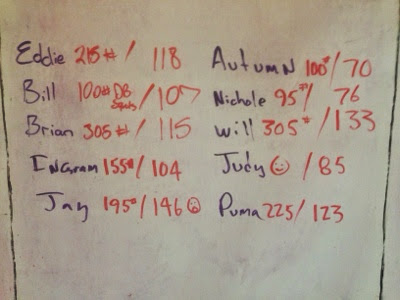 Eddie 215# / 118
Bill 100# DB Squats / 107
Brian 305# / 115
Ingram 155# / 104
Jay 195# / 146
Autumn 100# / 70
Nichole 95# / 76
Will 305# / 133
Judy / 85
Puma 225 / 123